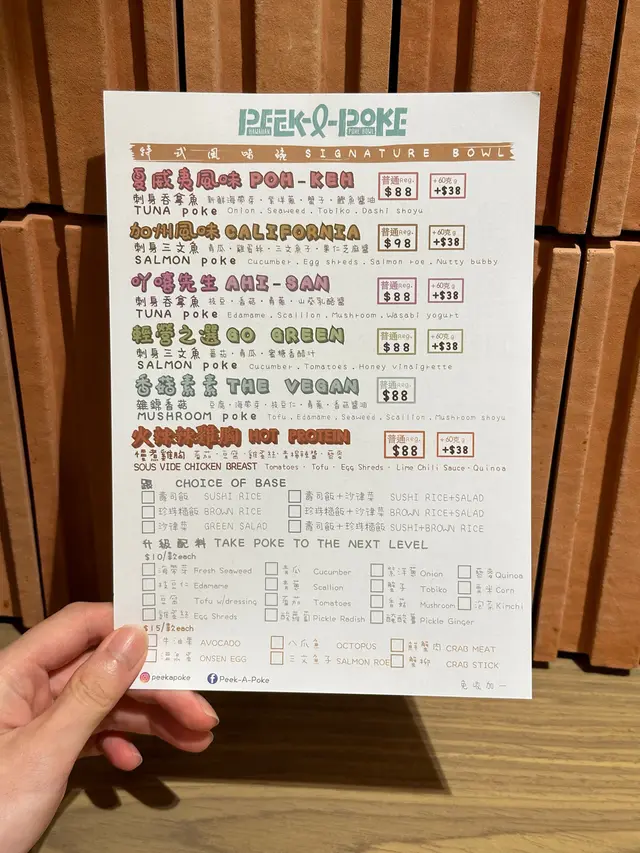 PEEK-A-POKE
HAWAIIAN POKE BOWL
特式風味燒 SIGNATURE BOWL
夏威夷風味 POH-KEH 普通Reg. $88 +60克g +$38
刺身吞拿魚 新鮮海帶芽·紫洋蔥·蟹子·鰹魚醬油
TUNA poke Onion. Seaweed. Tobiko. Dashi shoyu
加州風味 CALIFORNIA 普通Reg. $98 +60克g +$38
刺身三文魚 青瓜·雞蛋絲·三文魚子·果仁芝麻醬
SALMON poke Cucumber. Egg shreds. Salmon roe. Nutty bubby
吖嘻先生 AHI-SAN 普通Reg. $88 +60克g +$38
刺身吞拿魚 枝豆·香菇·青蔥·山葵乳酪醬
TUNA poke Edamame. Scallion. Mushroom. Wasabi yogurt
輕營之選 GO GREEN 普通Reg. $88 +60克g +$38
刺身三文魚 蕃茄·青瓜·蜜糖香醋汁
SALMON poke Cucumber. Tomatoes. Honey vinaigrette
香菇素素 THE VEGAN 普通Reg. $88
雜錦香菇 豆腐·海帶芽·枝豆仁·青蔥·香菇醬油
MUSHROOM poke Tofu. Edamame. Seaweed. Scallion. Mushroom shoyu
火辣辣雞胸 HOT PROTEIN 普通Reg. $88 +60克g +$38
慢煮雞胸 蕃茄·豆腐·雞蛋絲·青檸辣醬·藜麥
SOUS VIDE CHICKEN BREAST Tomatoes · Tofu · Egg Shreds · Lime Chili Sauce · Quinoa
CHOICE OF BASE
壽司飯 SUSHI RICE 壽司飯+沙律菜 SUSHI RICE+SALAD
珍珠糙飯 BROWN RICE 珍珠糙飯+沙律菜 BROWN RICE+SALAD
沙律菜 GREEN SALAD 壽司飯+珍珠糙飯 SUSHI+BROWN RICE
升級配料 TAKE POKE TO THE NEXT LEVEL
$10/款each
海帶芽 Fresh Seaweed 青瓜 Cucumber 紫洋蔥 Onion 藜麥 Quinoa
枝豆仁 Edamame 青蔥 Scallion 蟹子 Tobiko 粟米 Corn
豆腐 Tofu w/dressing 蕃茄 Tomatoes 香菇 Mushroom 泡菜 Kimchi
雞蛋絲 Egg Shreds 酸蘿蔔 Pickle Radish 酸酸薑 Pickle Ginger
$15/款each
牛油果 AVOCADO 八爪魚 OCTOPUS 鮮蟹肉 CRAB MEAT
溫泉蛋 ONSEN EGG 三文魚子 SALMON ROE 蟹柳 CRAB STICK
peekapoke Peek-A-Poke 免收加一